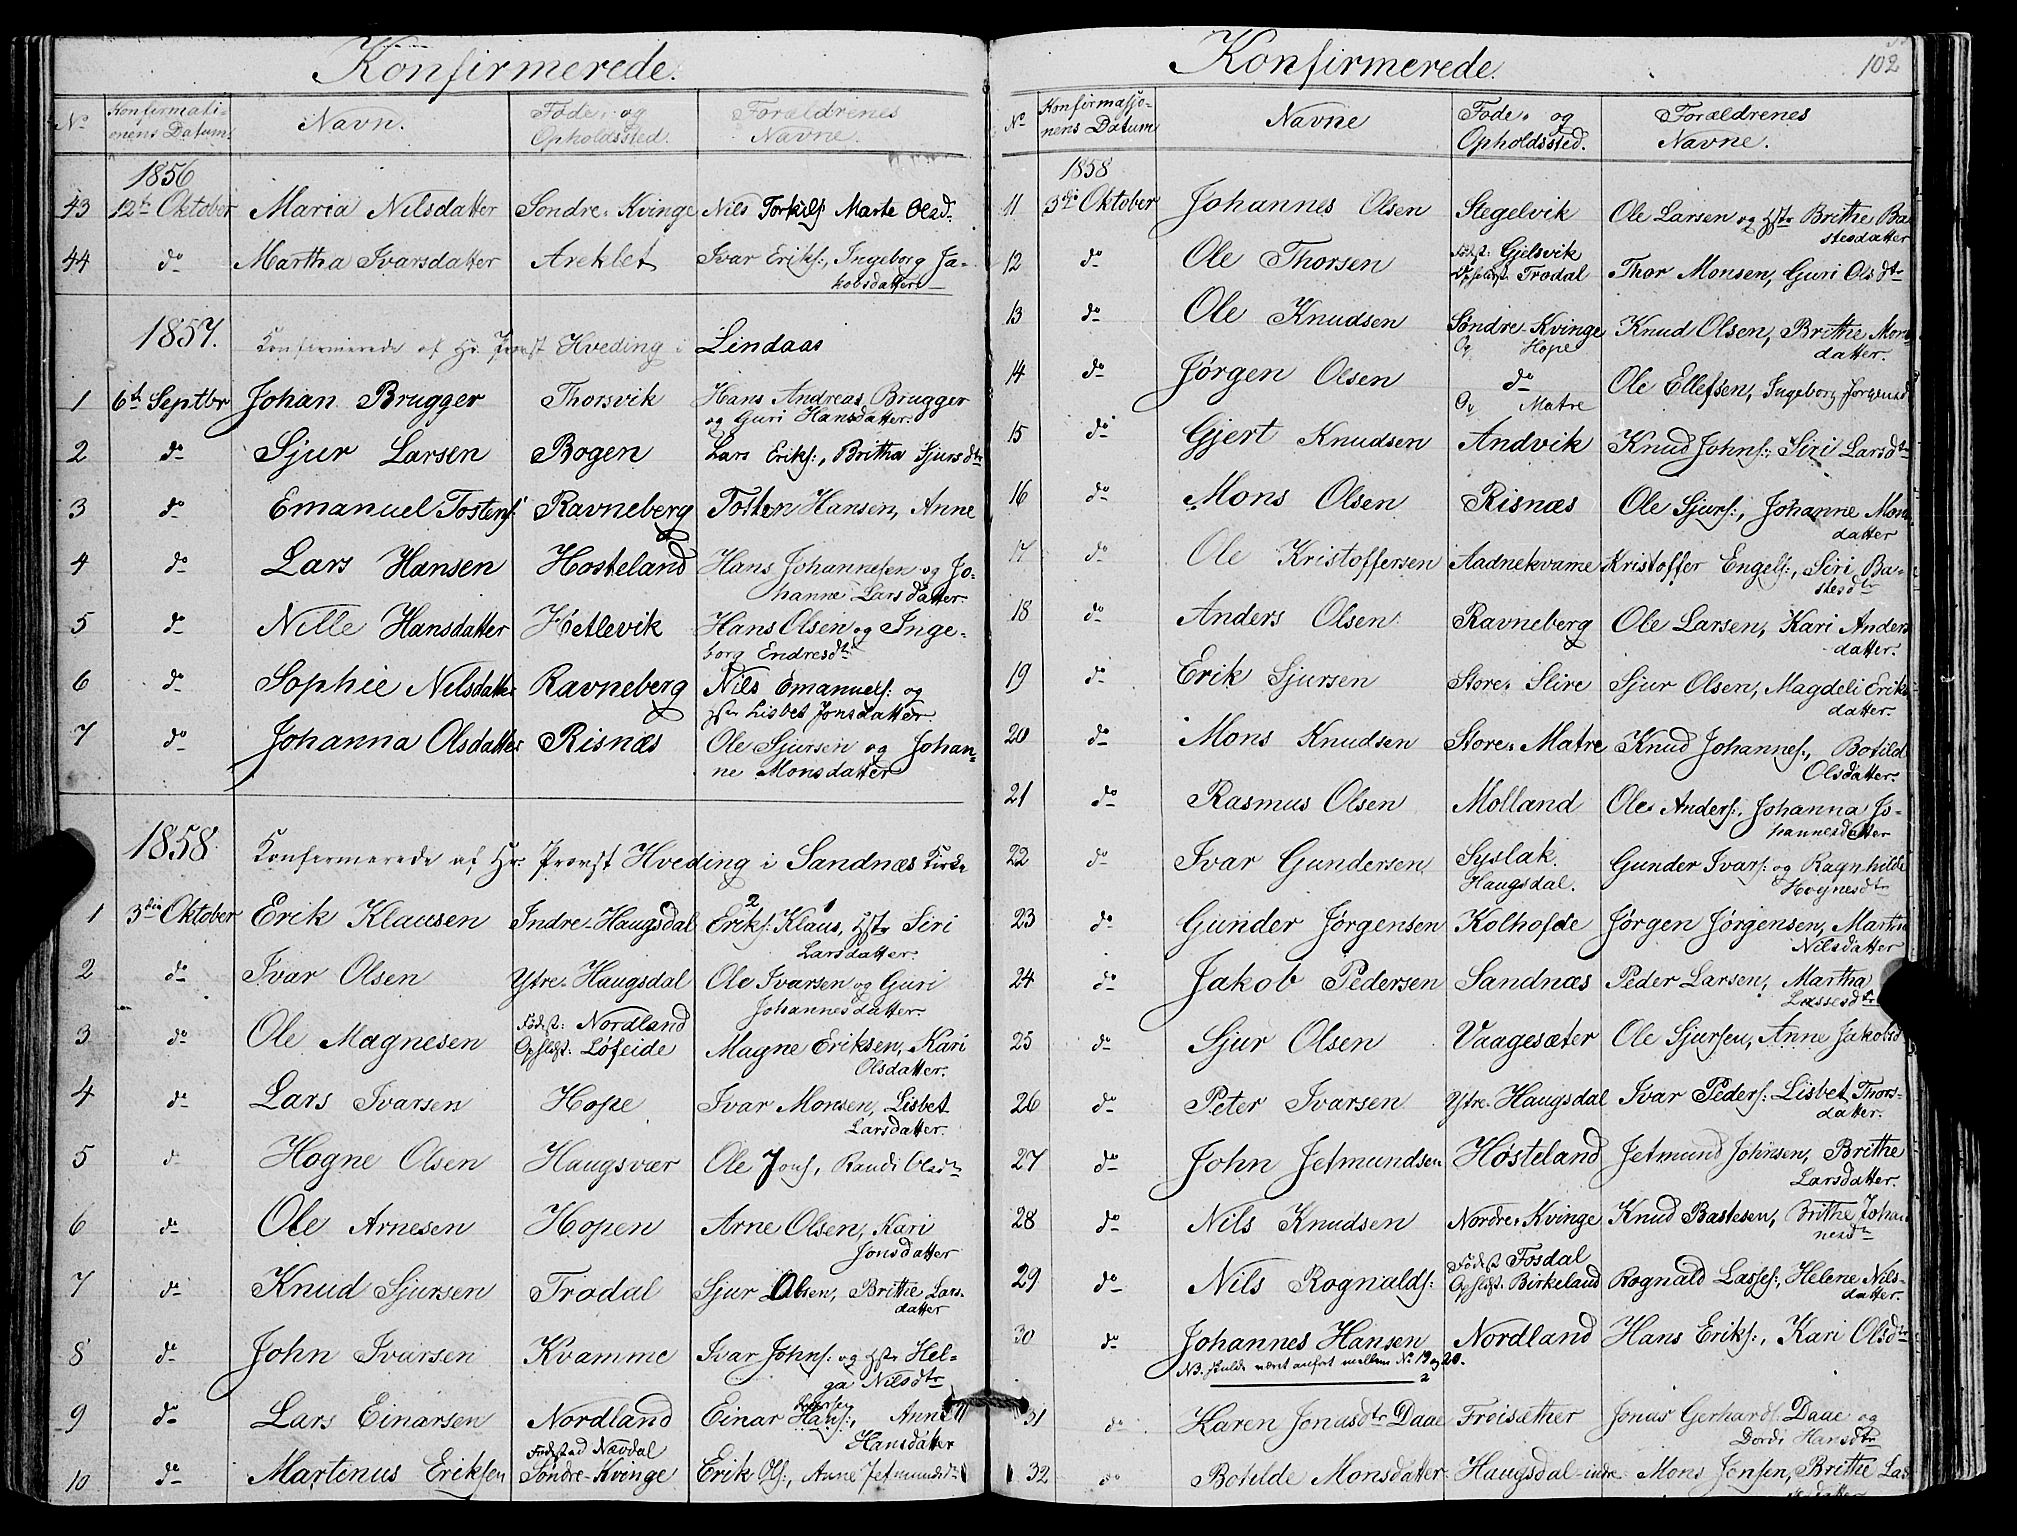 Konfirmerede.
No Konfirmati- Navn. Føde- og Forældrenes
onens Datum Opholdssted. Navne.
1856
43 12te Oktober Maria Nilsdatter Søndre-Kvinge Nils Torkils: Marte Olsd.
44 do Martha Ivarsdatter Areklet Ivar Eriks:, Ingeborg Ja-
kobsdatter
1857. Konfirmerede af Hr. Provst Hveding i Lindaas
1 6te Septbr Johan Brugger Thorsvik Hans Andreas Brugger
og Guri Hansdatter.
2 do Sjur Larsen Bogen Lars Eriks:, Britha Sjursdtr
3 do Emanuel Tostens: Ravneberg Tosten Hansen, Anne
4 do Lars Hansen Hosteland Hans Johannesen og Jo-
hanne Larsdatter.
5 do Nille Hansdatter Hetlevik Hans Olsen og Inge-
borg Endresdtr
6 do Sophie Nilsdatter Ravneberg Nils Emanuels: og
Hstr Lisbet Jonsdatter.
7 do Johanna Olsdatter Risnæs Ole Sjursen og Johan-
ne Monsdatter
1858. Konfirmerede af Hr. Provst Hveding i Sandnæs Kirke
1 3die Oktober Erik Klausen Indre-Haugsdal Eriks: Klaus, Hstr Siri
2 1
Larsdatter.
2 do Ivar Olsen Ytre-Haugsdal Ole Ivarsen og Guri
Johannesdatter.
3 do Ole Magnesen Fødst: Nordland
Ophldst: Løfeide Magne Eriksen, Kari
Olsdatter.
4 do Lars Ivarsen Hope Ivar Monsen, Lisbet
Larsdatter.
5 do Hogne Olsen Haugsvær Ole Jons:, Randi Olsdtr
6 do Ole Arnesen Hopen Arne Olsen, Kari
Jonsdatter
7 do Knud Sjursen Trodal Sjur Olsen, Brithe Lars-
datter
8 do John Ivarsen Kvamme Ivar Johns: og Hstr Hel-
ga Nilsdtr
9 do Lars Einarsen Nordland Einar Hans:, Anne
Hansdatter
10 do Martinus Eriksen Fødested Nævdal
Søndre-Kvinge Erik Ols:, Anne Jetmundsdtr
Konfirmerede. 102
No Konfirmasjo- Navne Føde- og Forældrenes
nens Datum Opholdssted. Navne.
1858
11 3die Oktober Johannes Olsen Stegelvik Ole Larsen og Hstr Brithe Ba-
stesdatter
12 do Ole Thorsen Fødst: Gjelsvik
Opholdst: Trodal Thor Monsen, Guri Olsdtr
13 do Ole Knudsen Søndre-Kvinge Knud Olsen, Brithe Mons-
Og Hope datter.
14 do Jørgen Olsen do Ole Ellefsen, Ingeborg Jørgensd
Og Matre
15 do Gjert Knudsen Andvik Knud Johns:, Siri Larsdtr
16 do Mons Olsen Risnæs Ole Sjurs:, Johanne Mons-
datter
17 do Ole Kristoffersen Aadnekvame Kristoffer Engels:, Siri Ba-
stesdtr
18 do Anders Olsen Ravneberg Ole Larsen, Kari Anders
datter.
19 do Erik Sjursen Store-Slire Sjur Olsen, Magdeli Eriks
datter.
20 do Mons Knudsen Store-Matre Knud Johannes:, Botilde
Olsdatter.
21 do Rasmus Olsen Molland Ole Anders:, Johanna Jo-
hannesdatter
22 do Ivar Gundersen Syslak. Gunder Ivars: og Ragnhilde
Haugsdal. Hognesdtr
23 do Gunder Jørgensen Kolhofde Jørgen Jørgensen, Martha
Nilsdatter
24 do Jakob Pedersen Sandnæs Peder Larsen, Martha
Lassesdtr
25 do Sjur Olsen Vaagesæter Ole Sjursen, Anne Jakobsd
26 do Peter Ivarsen Ytre-Haugsdal Ivar Peders: Lisbet Thors-
datter.
27 do John Jetmundsen Høsteland Jetmund Johnsen, Brithe
Larsdatter.
28 do Nils Knudsen Nordre-Kvinge Knud Bastesen, Brithe Johan
nesdtr
29 do Nils Rognalds: Fødest Fosdal
Ophldst: Birkeland Rognald Lasses:, Helene Nils-
datter.
30 do Johannes Hansen Nordland Hans Eriks:, Kari Olsdtr
NB. skulde været anført mellem No 19 og 20.
31 do Karen Jonasdtr Daae Frøisæther Jonas Gerhards: Daae og
Dordi Hansdtr
32 do Botilde Monsdatter Haugsdal-indre Mons Jonsen, Brithe Las